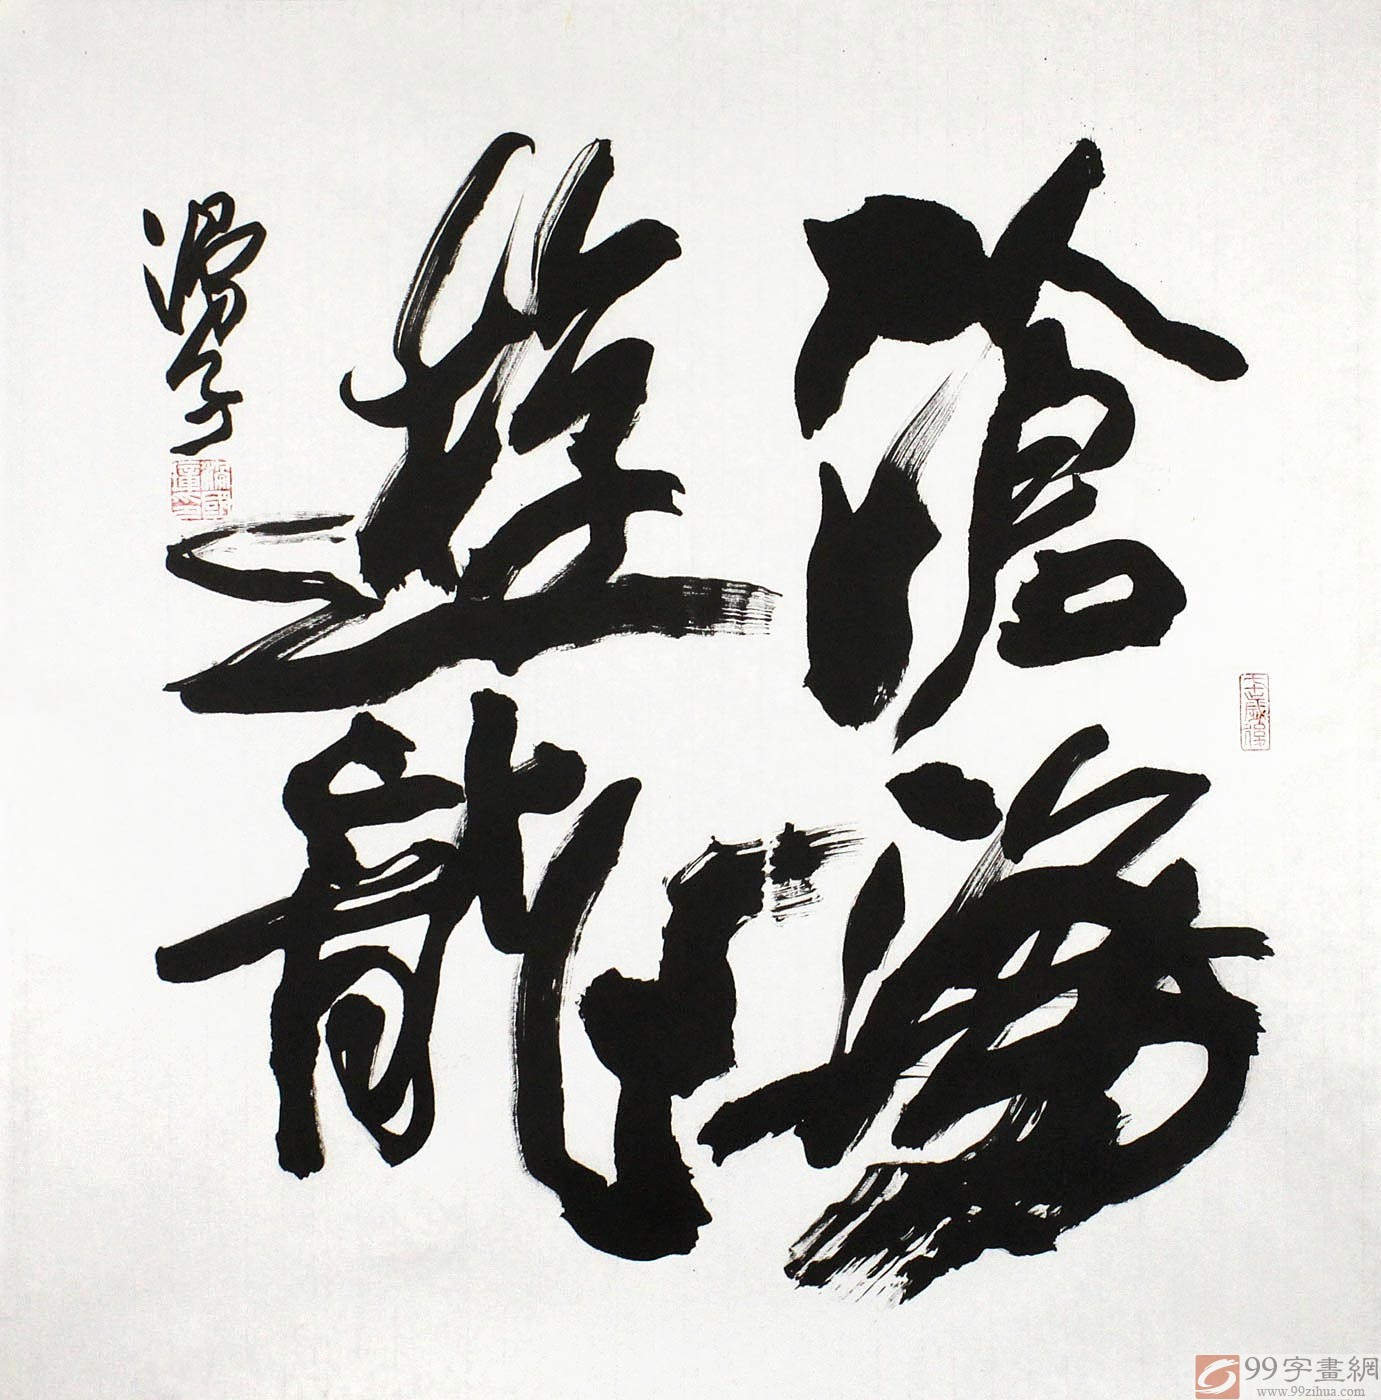 滄海
遊龍
99字畫網
www.99zihua.com